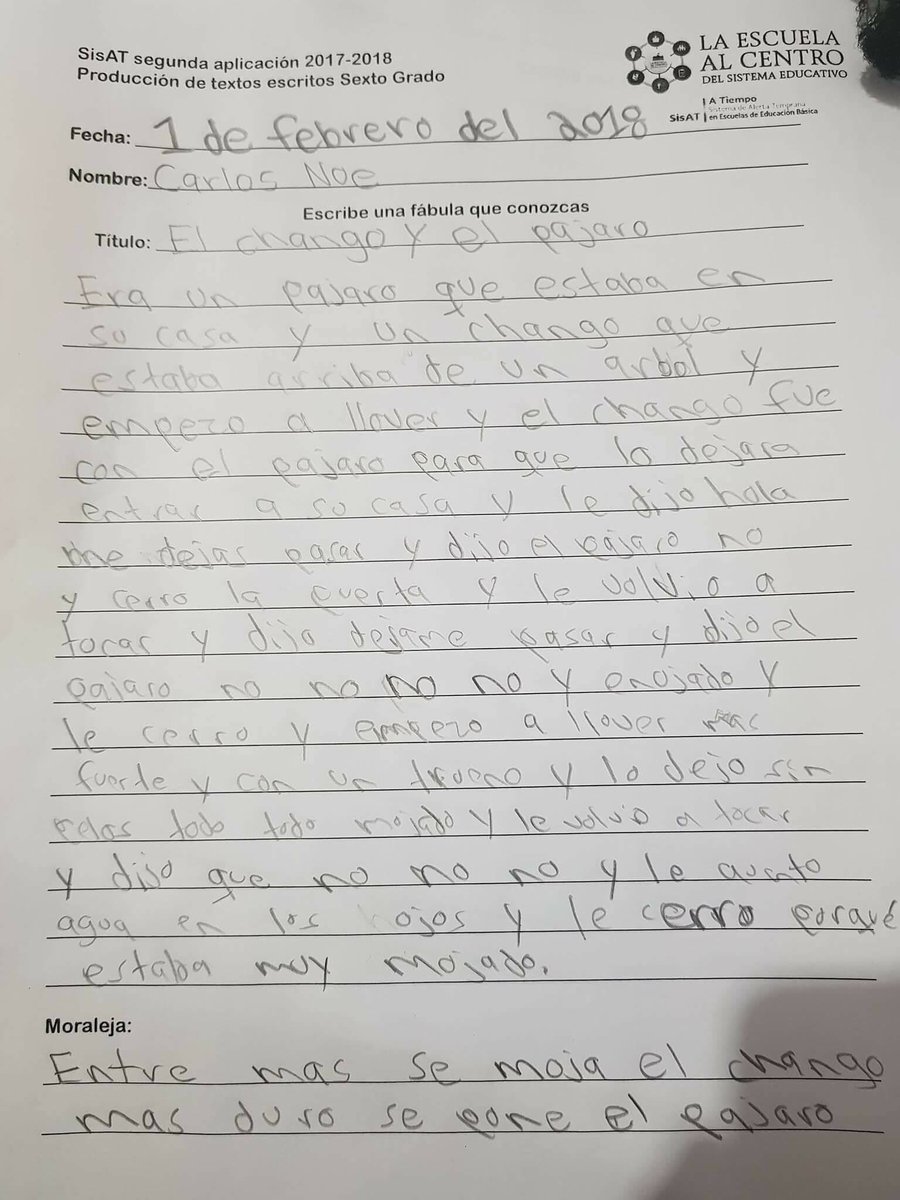 SisAT segunda aplicación 2017-2018
Producción de textos escritos Sexto Grado
LA ESCUELA
AL CENTRO
DEL SISTEMA EDUCATIVO
SisAT
A Tiempo
Sistema de Alerta Temprana
en Escuelas de Educación Básica
Fecha: 1 de febrero del 2018
Nombre: Carlos Noe
Escribe una fábula que conozcas
Título: El chango y el pajaro
Era un pajaro que estaba en
su casa y un chango que
estaba arriba de un arbol y
empezo a llover y el chango fue
con el pajaro para que lo dejara
entrar a so casa y le dijo hola
me dejas pasar y dijo el pajaro no
y cerro la puerta y le volvio a
tocar y dijo dejame pasar y dijo el
pajaro no no no no y enojado y
le cerro y empezo a llover mas
fuerte y con un trueno y lo dejo sin
pelos todo todo mojado y le volvio a tocar
y dijo que no no no y le avento
agua en los ojos y le cerro porqué
estaba muy mojado.
Moraleja:
Entre mas se moja el chango
mas duro se pone el pajaro